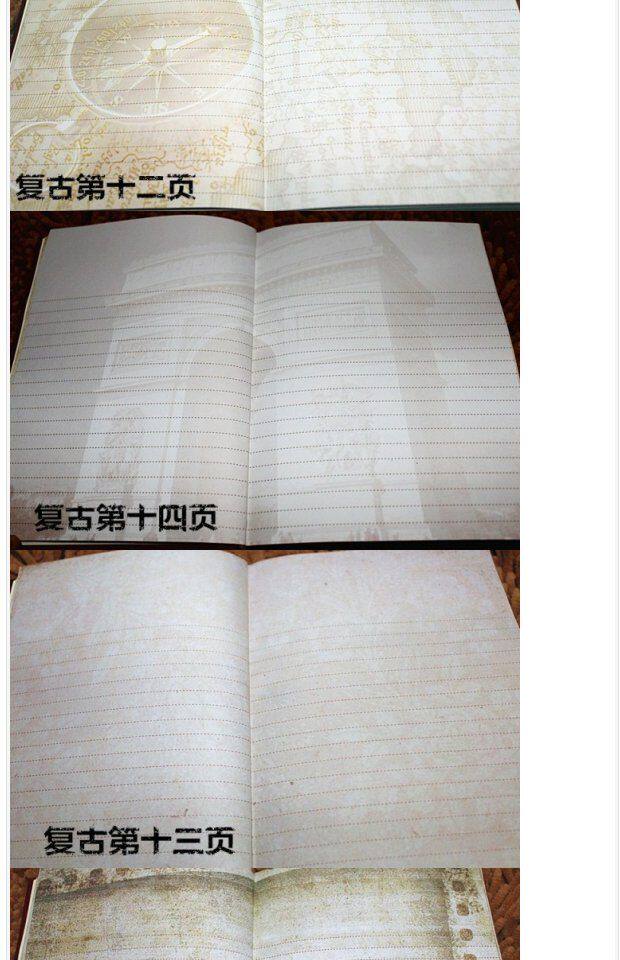 复古第十二页
复古第十四页
复古第十三页